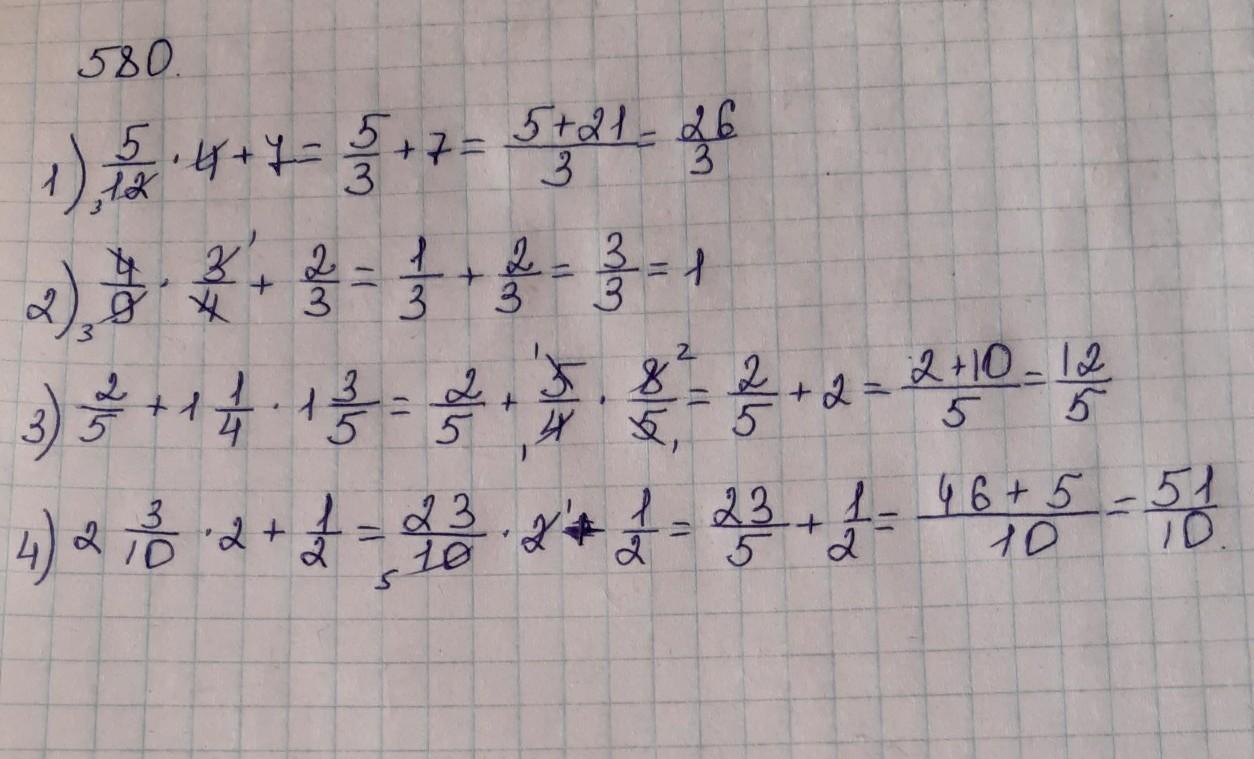 580.
1) 5/12 · 4 + 7 = 5/3 + 7 = (5+21)/3 = 26/3
2) 4/9 · 3/4 + 2/3 = 1/3 + 2/3 = 3/3 = 1
3) 2/5 + 1 1/4 · 1 3/5 = 2/5 + 5/4 · 8/5 = 2/5 + 2 = (2+10)/5 = 12/5
4) 2 3/10 · 2 + 1/2 = 23/10 · 2 + 1/2 = 23/5 + 1/2 = (46+5)/10 = 51/10.